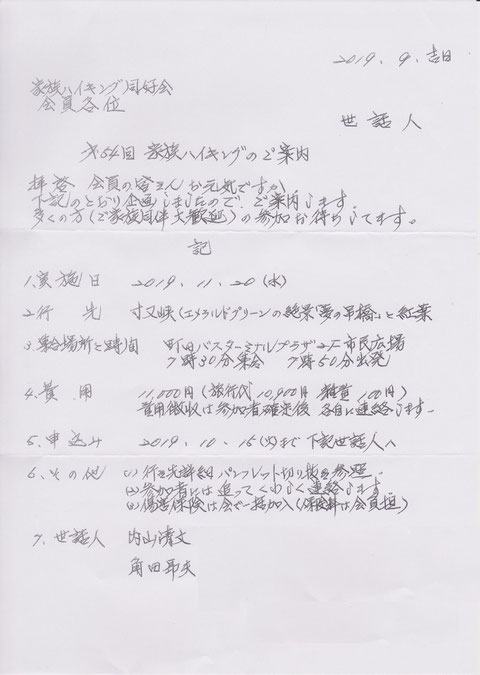 2019.9.吉日
家族ハイキング同好会
会員各位
世話人
第54回 家族ハイキングのご案内
拝啓 会員の皆さんお元気ですか
下記のとおり企画しましたので、ご案内します。
多くの方(ご家族同伴大歓迎)の参加お待ちしてます。
記
1.実施日 2019.11.20(水)
2.行先 寸又峡(エメラルドグリーンの絶景"夢の吊橋"と紅葉
3.集合場所と時間 町田バスターミナルプラザ2F市民広場
7時30分集合 7時50分出発
4.費用 11,000円(旅行代10,900円 雑費100円)
費用徴収は参加者確定後 各自に連絡します。
5.申込み 2019.10.15(火)まで下記世話人へ
6.その他 (1)行き先詳細パンフレット切り抜き参照。
(2)参加者には追ってくわしく連絡します
(3)傷害保険は会で一括加入(保険料は会負担)
7.世話人 内山清文
角田昻夫